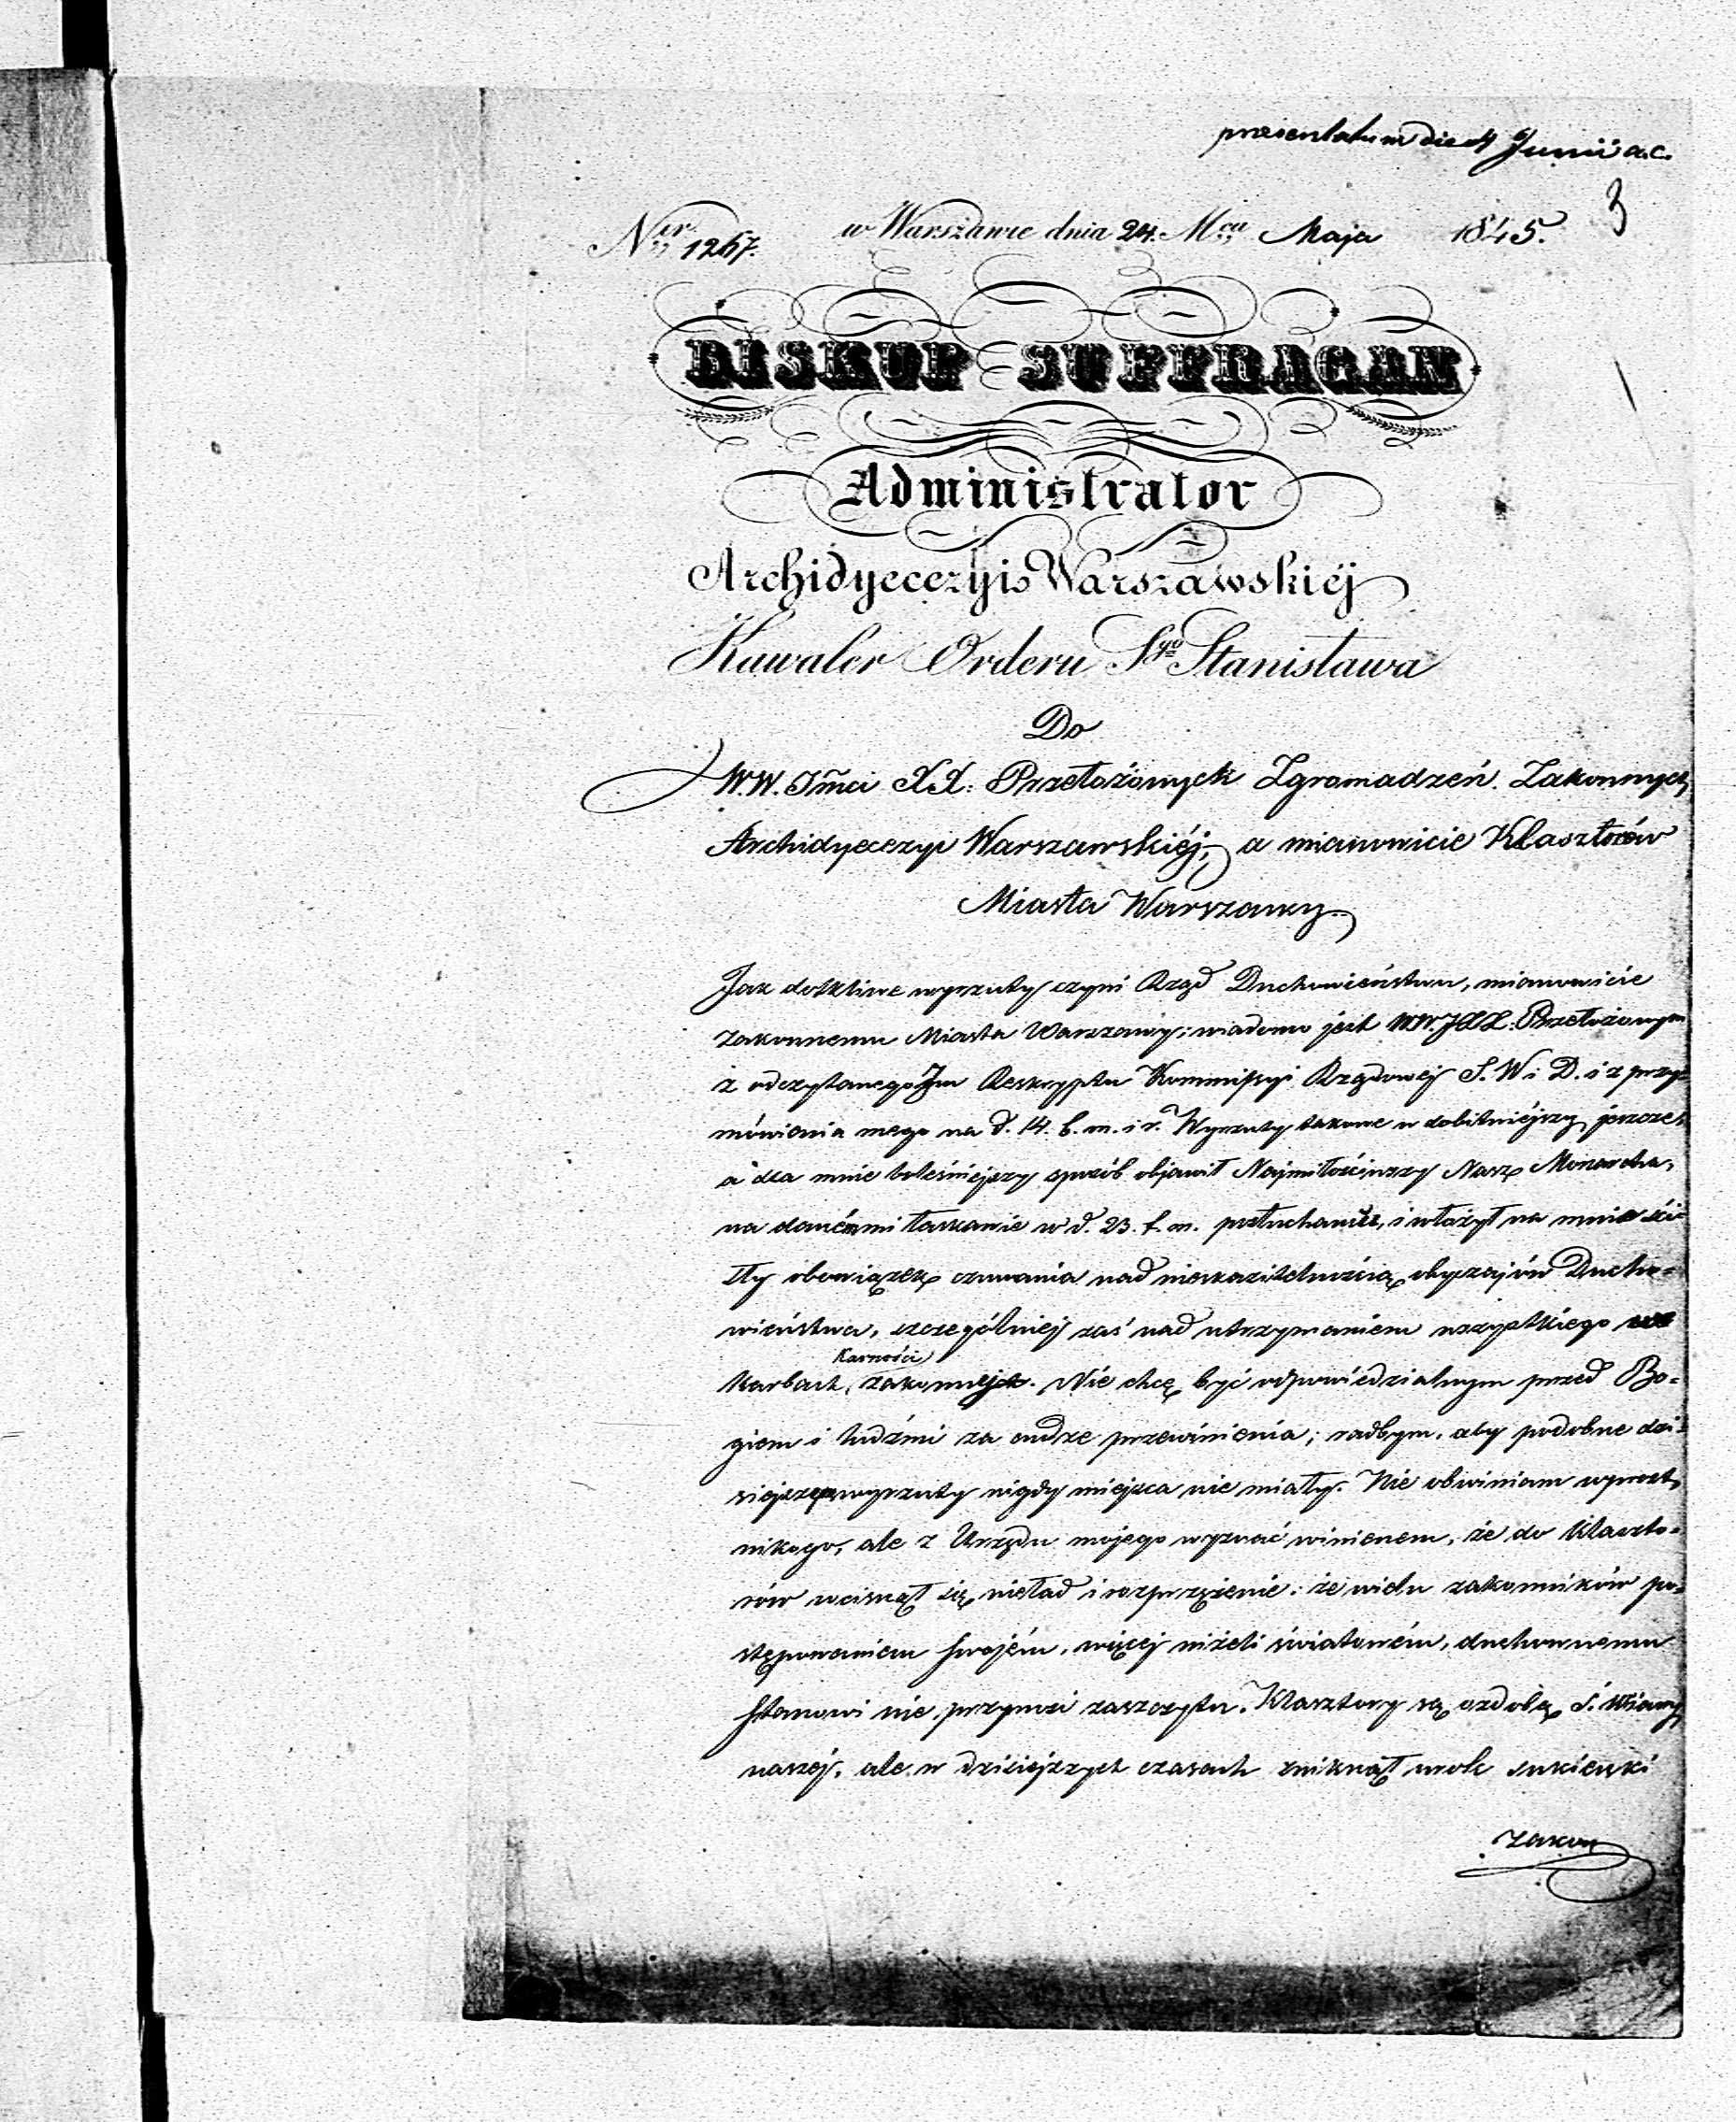 praesentatum die 4 Junii a.c.
3
Ner 1267. w Warszawie dnia 24. Mca Maja 1845.
BISKUP SUFFRAGAN
Administrator
Archidyecezyi Warszawskiéj
Kawaler Orderu Sgo Stanisława
Do
W.W. Jmci X.X. Przełożonych Zgromadzeń Zakonnych
Archidyecezyi Warszawskiéj, a mianowicie Klasztorów
Miasta Warszawy.
Jak dotkliwe wyrzuty czyni Rząd Duchowieństwu, mianowicie
zakonnemu Miasta Warszawy; wiadomo jest WW. JXX. Przełożonym
z odczytanego Im Reskryptu Kommissyi Rządowej S. W. i D. i z przy-
mówienia mego na d. 14. b. m. i r. Wyrzuty takowe w dobitniéjszy jeszcze,
a dla mnie boleśniejszy sposób objawił Najmiłościwszy Nasz Monarcha,
na daném mi łaskawie w d. 23. b. m. posłuchaniu, i włożył na mnie ści-
sły obowiązek czuwania nad nieskazitelnością obyczajów Ducho-
wieństwa, szczególniej zaś nad utrzymaniem wszystkiego we
karbach karności zakonnéj. Nie chcę być odpowiedzialnym przed Bo-
giem i ludźmi za cudze przewinienia; radbym, aby podobne dzi-
siejszym wyrzuty nigdy miejsca nie miały. Nie obwiniam wprost
nikogo, ale z Urzędu mojego wyznać winienem, że do Klaszto-
rów wcisnął się nieład i rozprzężenie; że wielu zakonników po-
stępowaniem swojém, więcej niżeli światowém, duchownemu
stanowi nie przynosi zaszczytu. Klasztory są ozdobą S. Wiary
naszéj, ale w dzisiejszych czasach zniknął urok sukienki
zakon